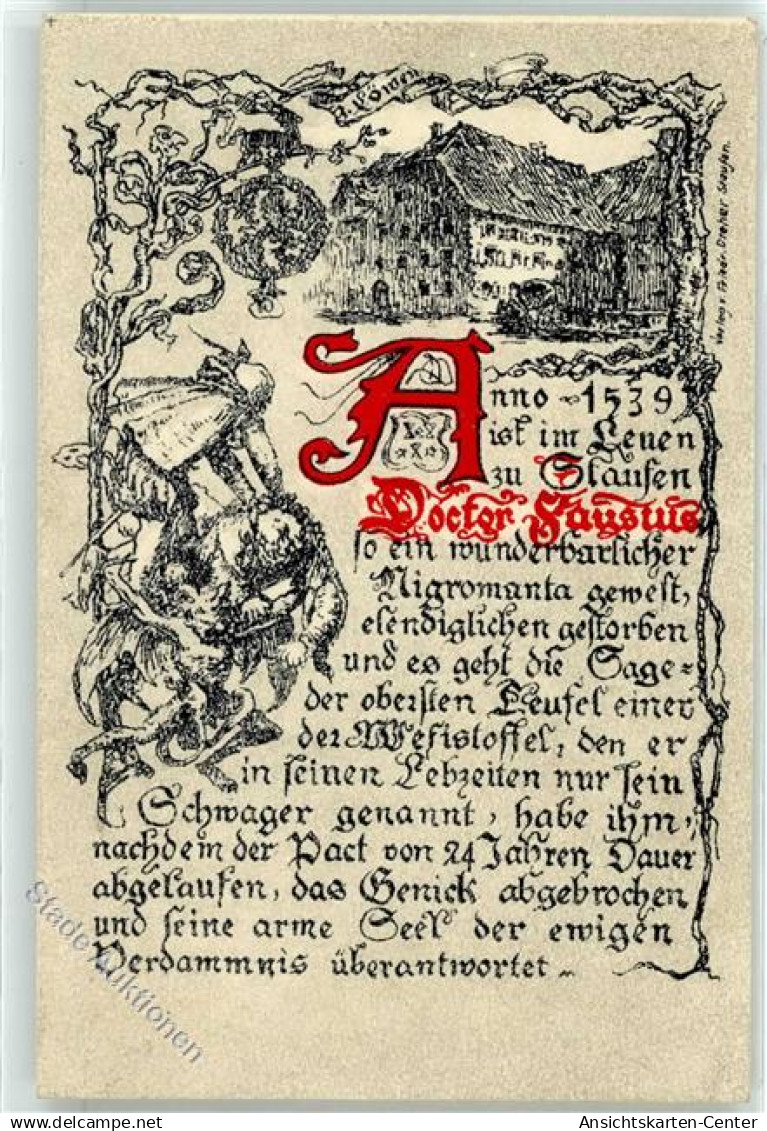 z. Löwen
Verlag v. Fridr. Dreher Staufen.
Anno 1539
ist im Leuen
zu Staufen
Doctor Faustus
so ein wunderbarlicher
Nigromanta gewest,
elendiglichen gestorben
und es geht die Sage
der obersten Teufel einer
der Mefistoffel, den er
in seinen Lebzeiten nur sein
Schwager genannt, habe ihm,
nachdem der Pact von 24 Jahren Dauer
abgelaufen, das Genick abgebrochen
und seine arme Seel der ewigen
Verdammnis überantwortet
Stade Auktionen
akpool.de
Ansichtskarten-Center